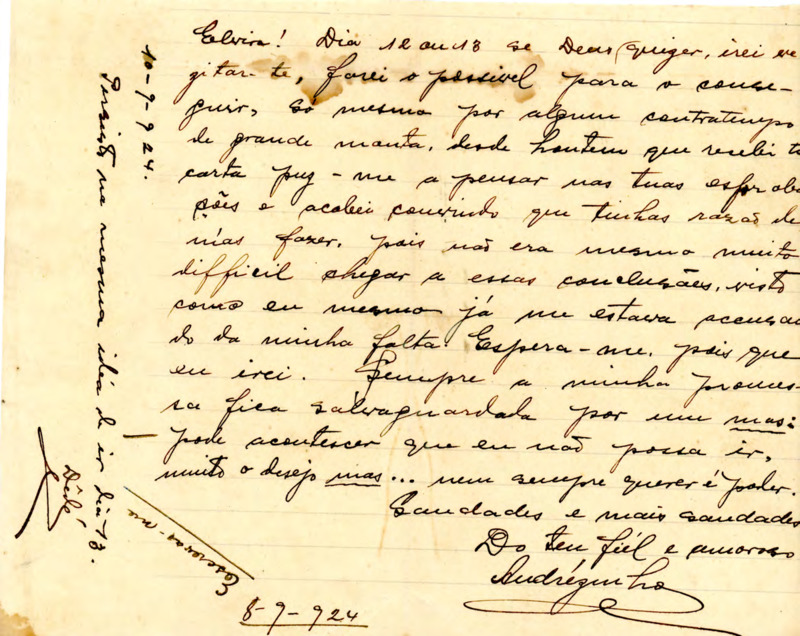 Elvira! Dia 12 ou 13 se Deus quizer, irei vi
zitar-te, farei o possivel para o conse-
guir, só mesmo por algum contratempo
de grande monta, desde hontem que recebi tu
carta puz-me a pensar nas tuas
ções e acabei convindo que tinhas razão de
m'as fazer, pois não era mesmo muito
difficil chegar a essas conclusões, visto
como eu mesmo já me estava accusan
do da minha falta. Espera-me, pois que
eu irei. Sempre a minha promes-
sa fica salvaguardada por um mas:
pode acontescer que eu não possa ir,
muito o desejo mas... nem sempre querer é poder.
Saudades e mais saudades
Do teu fiél e amoroso
Andrézinho
8-9-924
Escreve-me
10-9-924.
Persisto na mesma idéa de ir dia 13.
Dédé